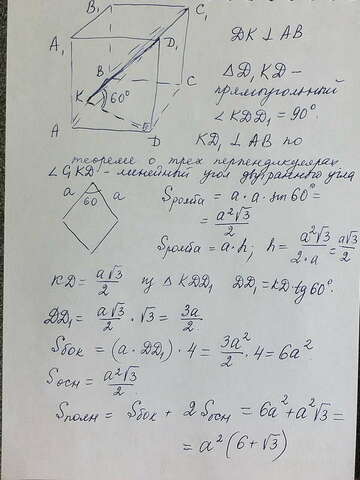 B₁ C₁
A₁ D₁
DK ⊥ AB
B C
K 60°
A D
△ D₁KD –
прямоугольный
∠KDD₁ = 90°.
KD₁ ⊥ AB по
теореме о трех перпендикулярах
∠C₁KD - линейный угол двугранного угла
a 60 a
Sромба = a · a · sin 60° =
= a²√3/2
Sромба = a · h; h = a²√3/2·a = a√3/2
KD = a√3/2 из △ KDD₁ DD₁ = KD · tg 60°.
DD₁ = a√3/2 · √3 = 3a/2
Sбок = (a · DD₁) · 4 = 3a²/2 · 4 = 6a².
Sосн = a²√3/2
Sполн = Sбок + 2 Sосн = 6a² + a²√3 =
= a² (6 + √3)